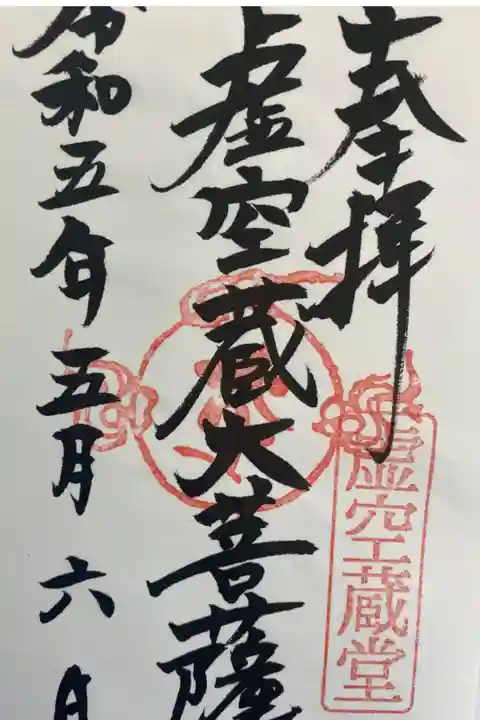 奉拝
虚空蔵堂
虚空蔵大菩薩
令和五年五月六日